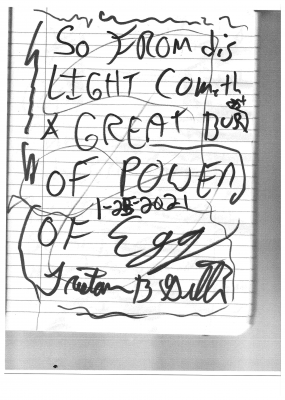 So FROM dis
LIGHT Cometh
A GREAT BURst
OF POWER
1-28-2021
OF Egg
B